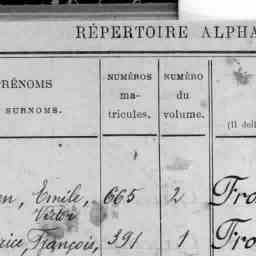 RÉPERTOIRE ALPHA
PRÉNOMS
SURNOMS.
NUMÉROS
ma-
tricules.
NUMÉRO
du
volume.
(Il doi
en, Emile, 665 2 Fro
Victor
rice, François, 391 1 Fro